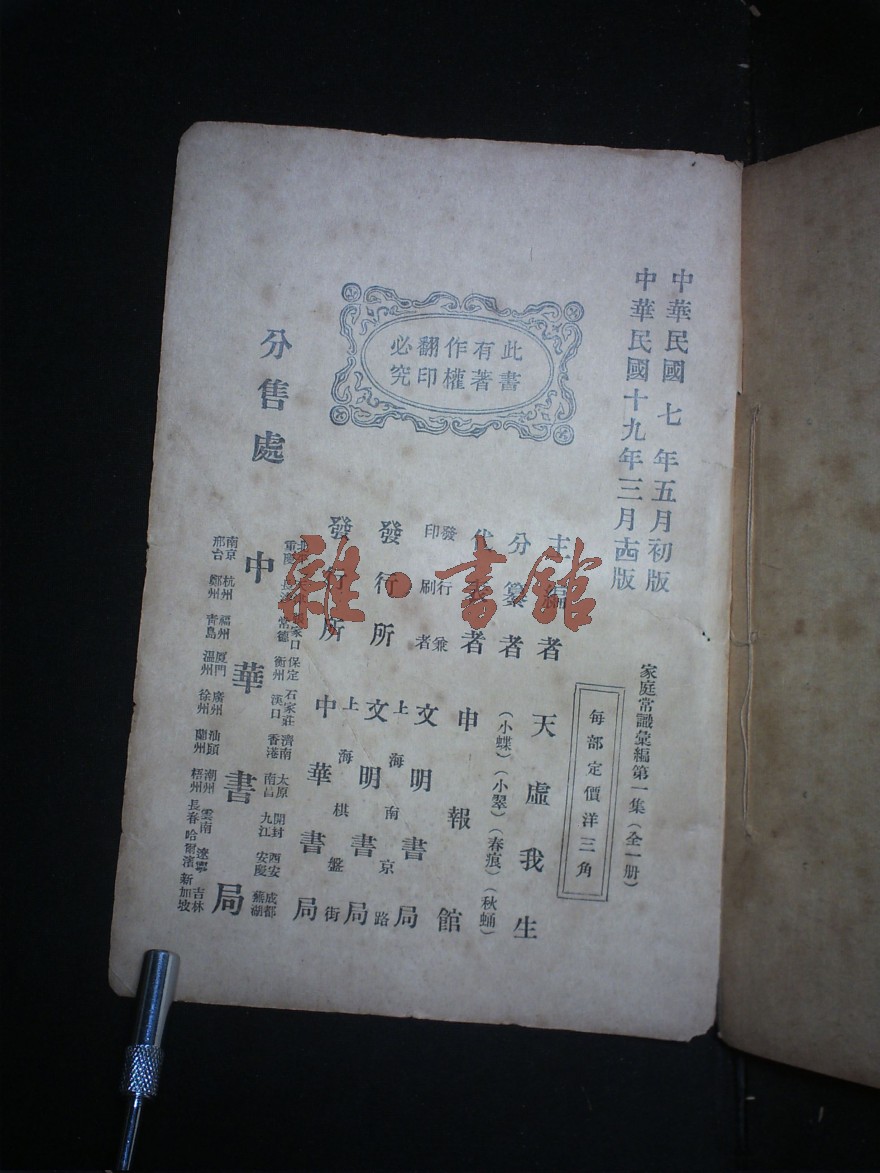 中華民國 七 年五月初版
中華民國十九年三月十四版
家庭常識彙編第一集(全一册)
每部定價洋三角
此書
有著
作權
翻印
必究
主編者 天虛我生
分纂者 (小蝶)(小翠)(春痕)(秋蛹)
代表者 申報館
發行兼
印刷者 文明書局
上海南京路
發行所 文明書局
上海棋盤街
發行所 中華書局
分售處
家口 保定 石家莊 濟南 太原 開封 西安 成都
重慶 長沙 常德 衡州 漢口 香港 南昌 九江 安慶 蕪湖
中華書局
南京 杭州 福州 廈門 廣州 汕頭 潮州 雲南 遼寧 吉林
邢台 鄭州 青島 溫州 徐州 蘭州 梧州 長春 哈爾濱 新加坡
雜·書館